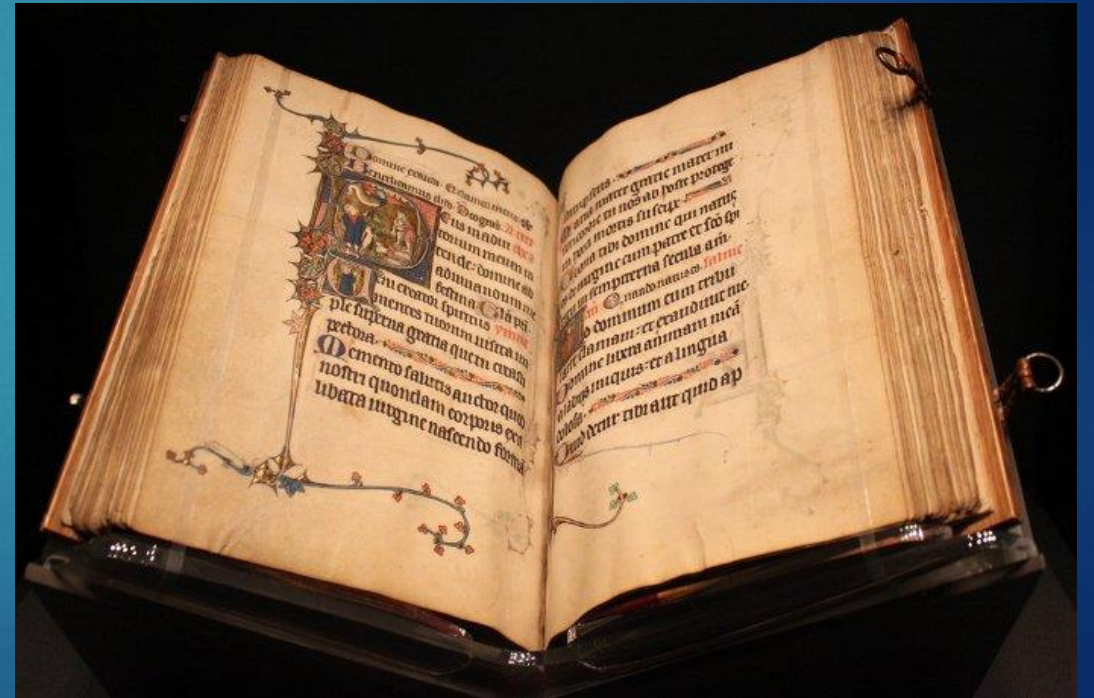 Domine exaudi. Et clamor meus
Benedicamus dno. Deo gras. A ters
Eus in adiu
torium meum in
tende: domine ad
adiuvandum me
festina. Gla pri.
eni creator spiritus ymne
mentes tuorum visita im
ple superna gratia que tu creasti
pectora.
Memento salutis auctor quod
nostri quondam corporis ex
ilibata virgine nascendo formā
Maria mater gratie mater mi
tu nos ab hoste protege
hora mortis suscipe.
tibi domine qui natus
de virgine cum patre et sco spi
in sempiterna secula. am.
natus es. salme
Ad dominum cum tribu
clamavi: et exaudivit me.
Domine libera animam meā
a labiis iniquis: et a lingua
dolosa.
Quid detur tibi aut quid ap